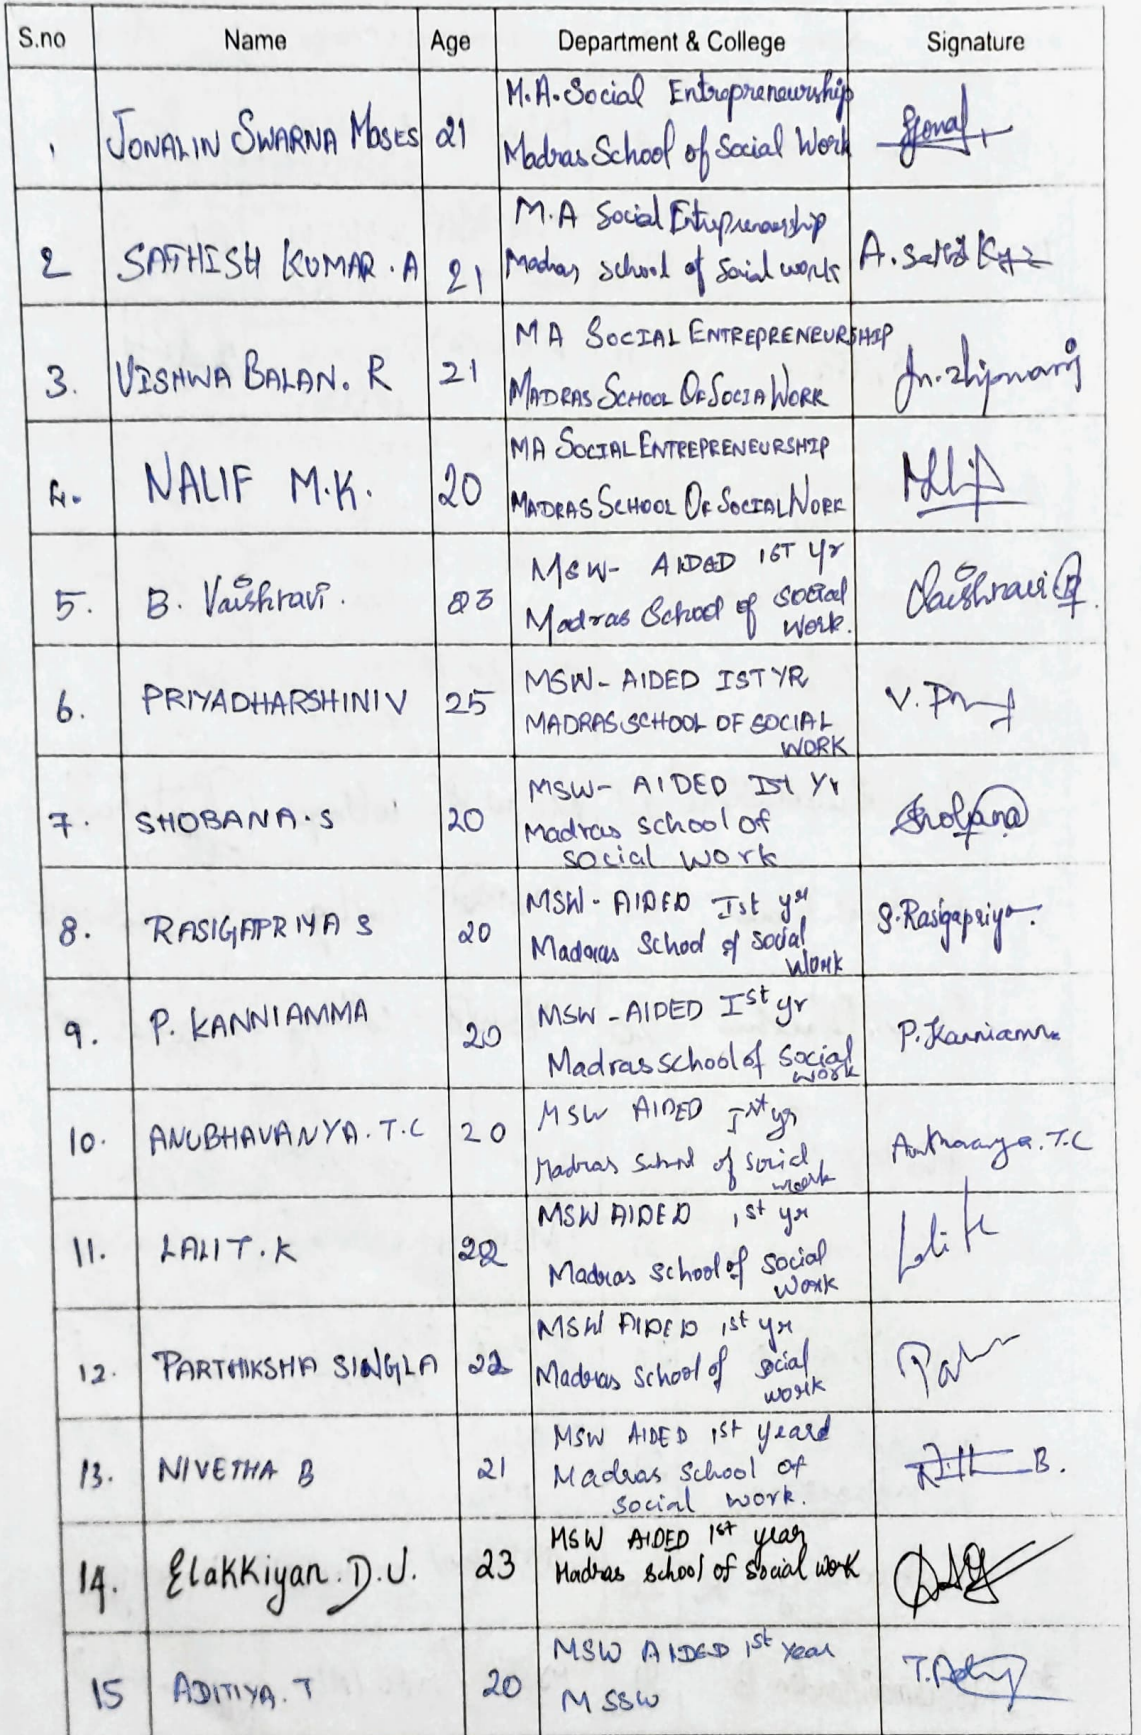 S.no Name Age Department & College Signature
1 JONALIN SWARNA MOSES 21 M.A. Social Entrepreneurship
Madras School of Social Work
2 SATHISH KUMAR . A 21 M.A Social Entrepreneurship
Madras school of Social work
3. VISHWA BALAN. R 21 MA SOCIAL ENTREPRENEURSHIP
MADRAS SCHOOL OF SOCIA WORK
4. NALIF M.K. 20 MA SOCIAL ENTREPRENEURSHIP
MADRAS SCHOOL OF SOCIAL WORK
5. B. Vaishravi. 23 MSW- AIDED 1ST yr Vaishravi
Madras School of social
work.
6. PRIYADHARSHINI V 25 MSW- AIDED IST YR V.
MADRAS SCHOOL OF SOCIAL
WORK
7. SHOBANA.S 20 MSW- AIDED Ist Yr Shobana
Madras school of
social work
8. RASIGAPRIYA S 20 MSW- AIDED Ist yr S.Rasigapriya.
Madras School of social
work
9. P. KANNIAMMA 20 MSW - AIDED Ist yr P.Kanniamma
Madras school of social
work
10. ANUBHAVANYA. T.C 20 MSW AIDED Ist yr T.C
Madras School of social
work
11. LALIT. K 22 MSW AIDED 1st yr
Madras school of social
work
12. PARTHIKSHA SINGLA 22 MSW AIDED 1st yr
Madras school of social
work
13. NIVETHA B 21 MSW AIDED 1st yeard B.
Madras School of
social work.
14. Elakkiyan. D.J. 23 MSW AIDED 1st year
Madras school of social work
15 ADITIYA. T 20 MSW AIDED 1st Year
MSSW